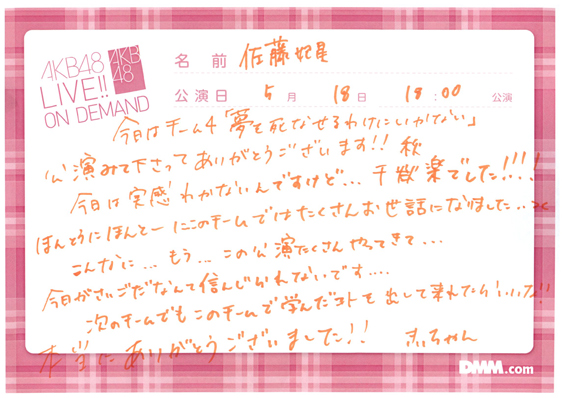 AKB48
LIVE!!
ON DEMAND
AKB
48
名前 佐藤妃星
公演日 5月 18日 18:00 公演
今日はチーム4「夢を死なせるわけにいかない」
公演みて下さってありがとうございます!!
今日は実感わかないんですけど... 千秋楽でした!!!!
ほんとうにほんとーにこのチームではたくさんお世話になりました...
こんなに... もう... この公演たくさんやってきて...
今日がさいごだなんて信じられないです....
次のチームでもこのチームで学んだコトを出して来れたらいいな!
本当にありがとうございました!!
DMM.com